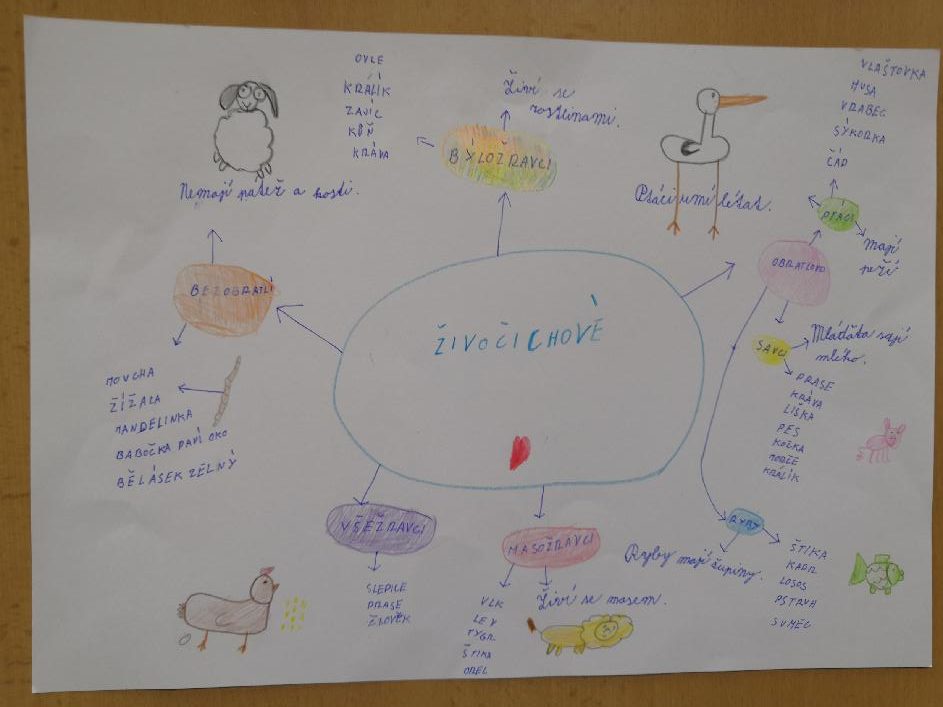 ŽIVOČICHOVÉ
BÝLOŽRAVCI
Živí se
rostlinami.
OVCE
KRÁLÍK
ZAJÍC
KŮŇ
KRÁVA
Nemají páteř a kosti.
BEZOBRATLÍ
MOUCHA
ŽÍŽALA
MANDELINKA
BABOČKA PAVÍ OKO
BĚLÁSEK ZELNÝ
VŠEŽRAVCI
SLEPICE
PRASE
ČLOVĚK
MASOŽRAVCI
VLK
LEV
TYGR
ŠTIKA
OREL
Živí se masem.
OBRATLOVCI
PTÁCI
VLAŠTOVKA
HUSA
VRABEC
SÝKORKA
ČÁP
mají
peří
Ptáci umí létat.
SAVCI
Mláďata sají
mléko.
PRASE
KRÁVA
LIŠKA
PES
KOČKA
MORČE
KRÁLÍK
RYBY
Ryby mají šupiny.
ŠTIKA
KAPR
LOSOS
PSTRUH
SUMEC